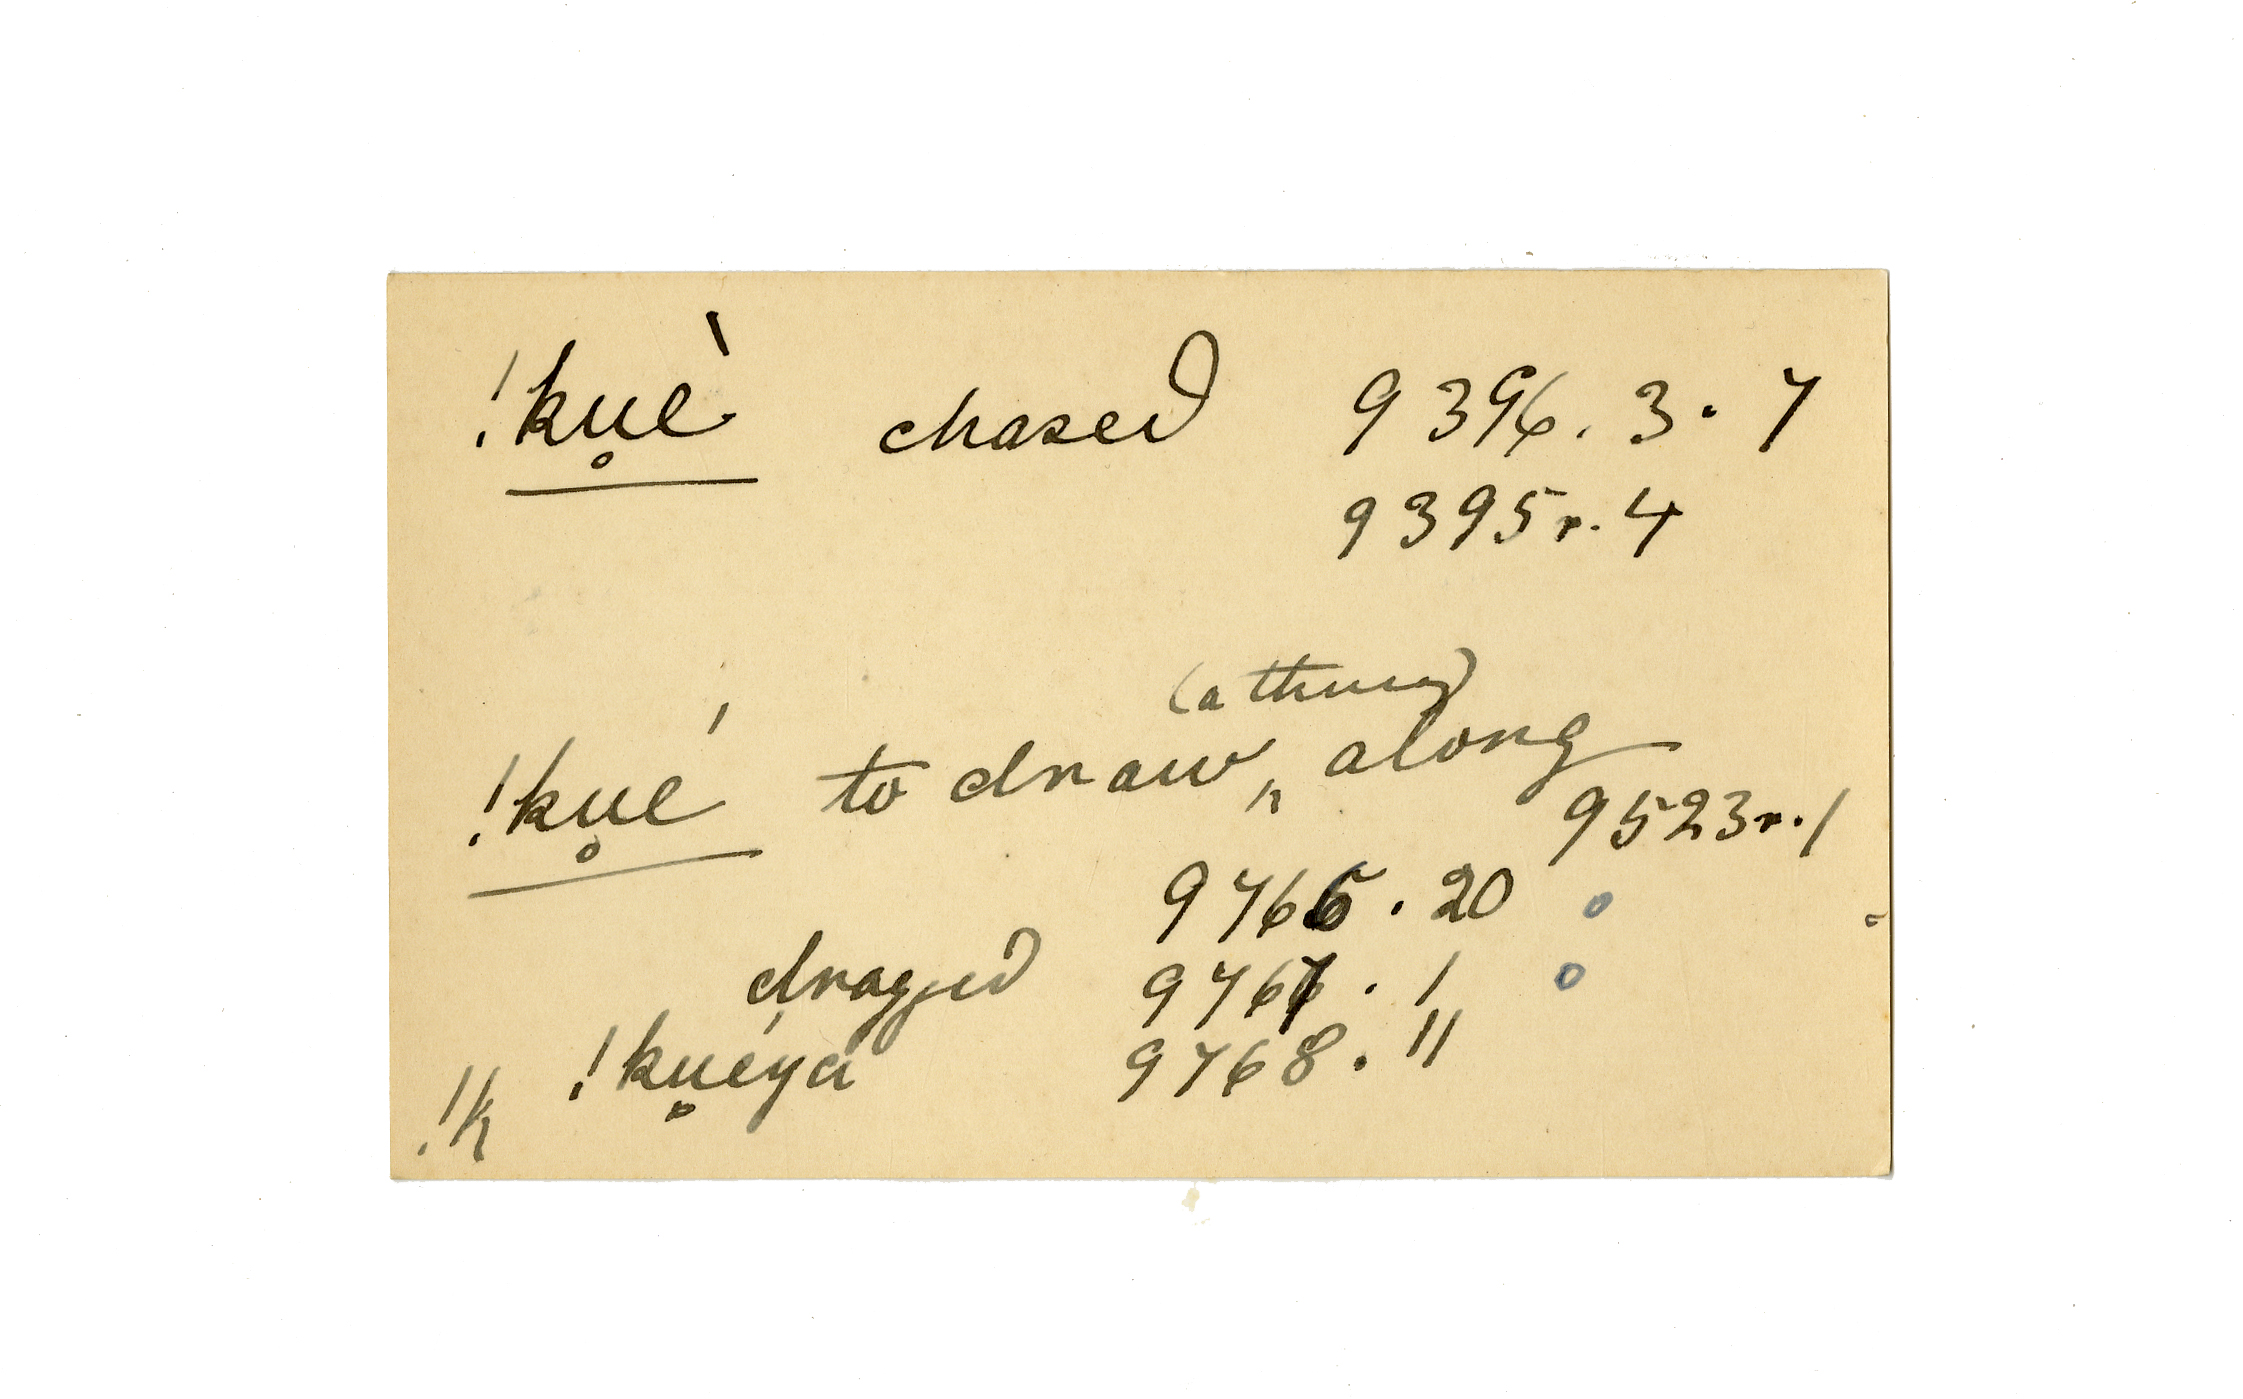 !ku̥è chased 9396. 3. 7
9395r. 4
(a thing)
!ku̥é to draw „ along
9523r. 1
9766. 20 o
dragged 9767. 1 o
!ku̥éya 9768. 11
!k